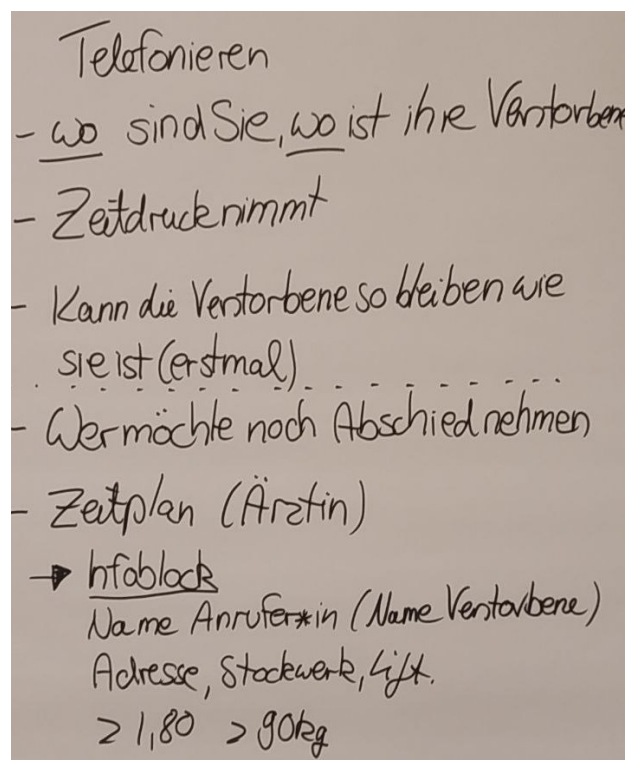 Telefonieren
- wo sind Sie, wo ist ihre Verstorbene
- Zeitdruck nimmt
- Kann die Verstorbene so bleiben wie
sie ist (erstmal)
- Wer möchte noch Abschied nehmen
- Zeitplan (Ärztin)
→ Infoblock
Name Anrufer*in (Name Verstorbene)
Adresse, Stockwerk, Lift.
> 1,80 > 90kg